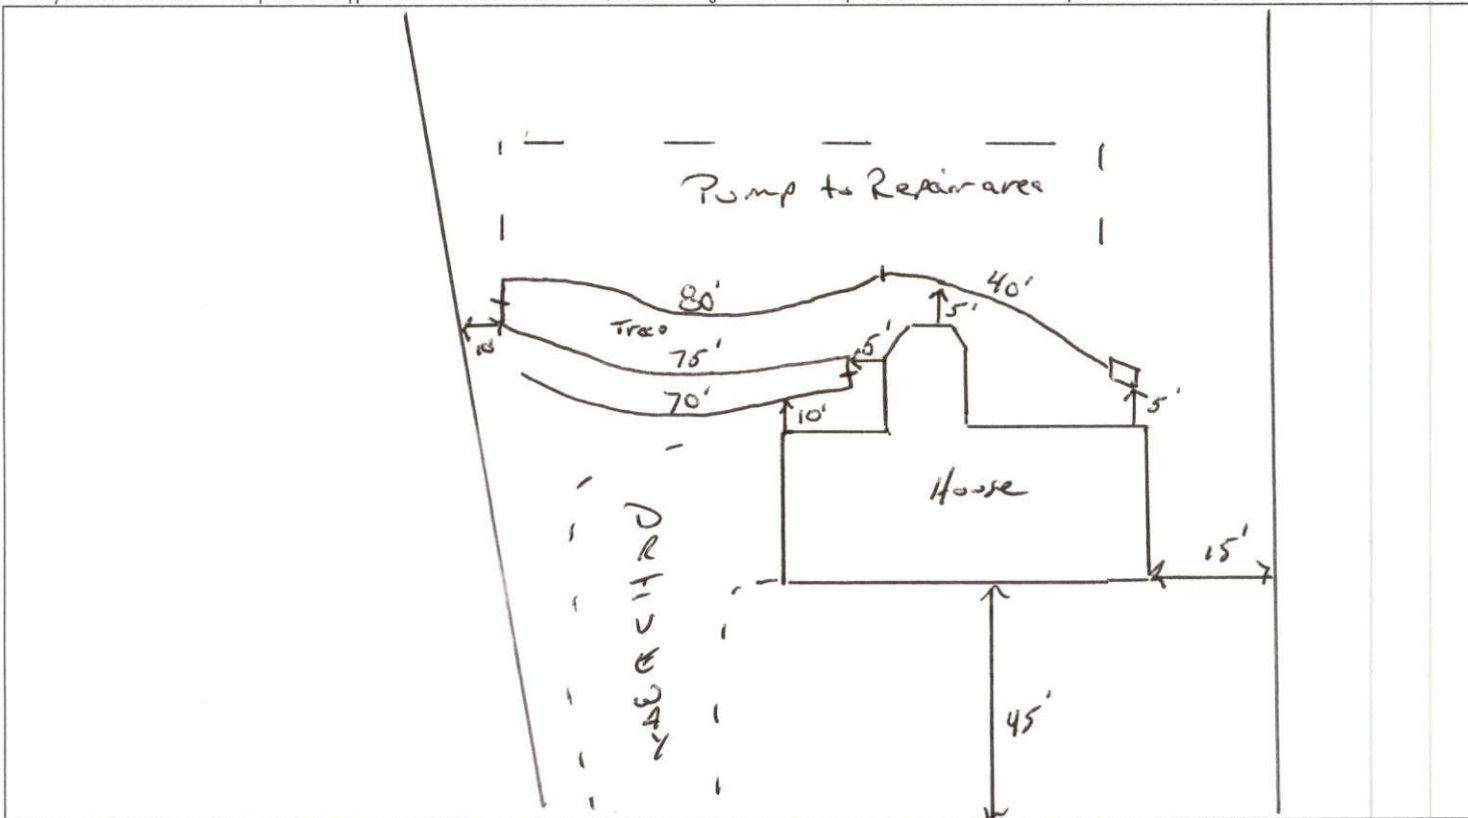 Pump to Repair area
80'
40'
5'
10'
75'
5'
70'
10'
5'
House
15'
DRIVEWAY
45'